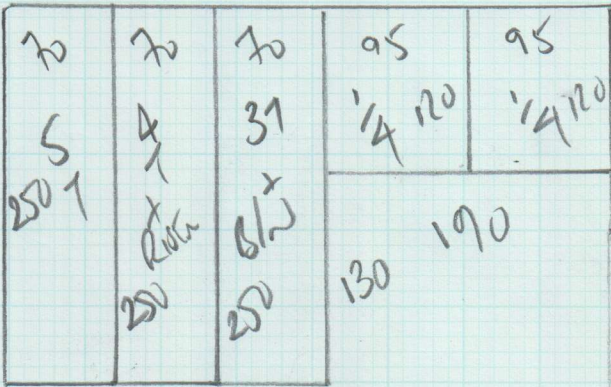 70
5
250 1
70
4
1
x
250
70
31
x
B/W
250
95
1/4 120
95
1/4 120
190
130